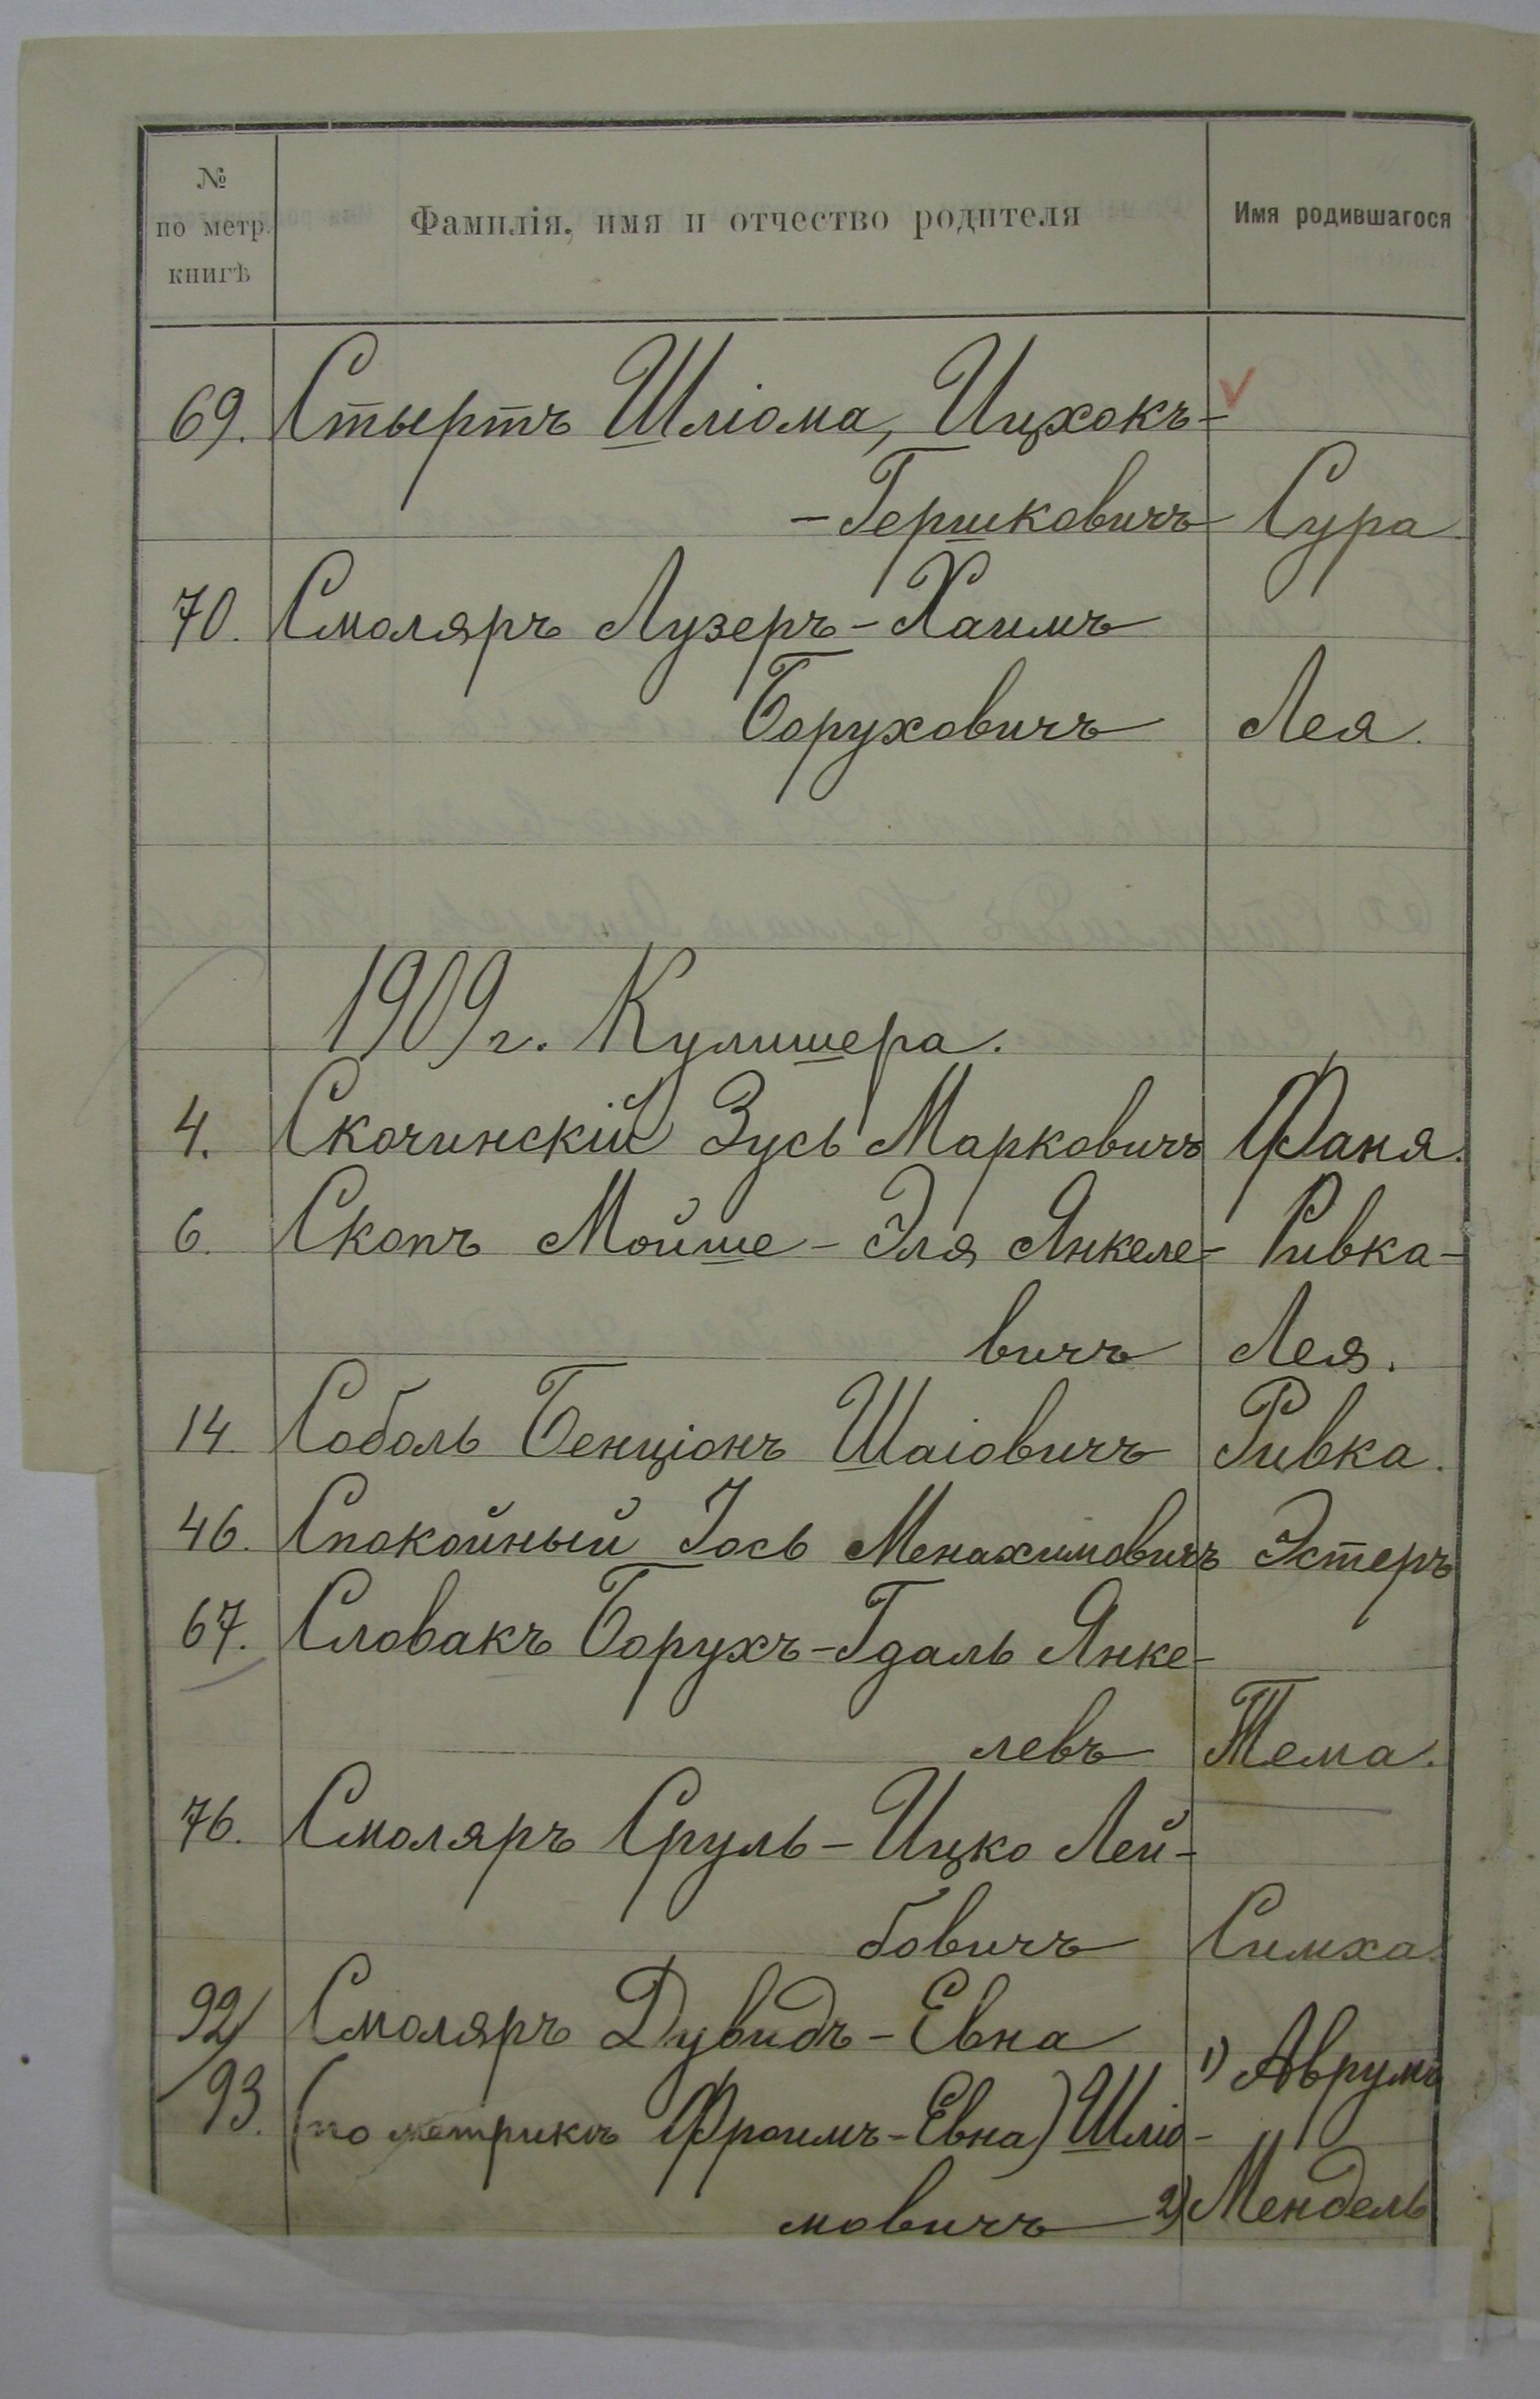 №
по метр.
книгѣ
Фамилія, имя и отчество родителя
Имя родившагося
69. Стыртъ Шліома, Ицхокъ-
-Гершковичъ Сура.
70. Смоляръ Лузеръ-Хаимъ
Боруховичъ Лея.
1909 г. Кулишера.
4. Скочинскій Зусь Марковичъ Фаня.
6. Скопъ Мойше-Эля Янкеле- Ривка-
вичъ Лея.
14. Соболь Бенціонъ Шаіовичъ Ривка.
46. Спокойный Іось Менахимовичъ Эстеръ
67. Словакъ Борухъ-Гдаль Янке-
левъ Тема.
76. Смоляръ Сруль-Ицко Лей-
бовичъ Симха.
92/ Смоляръ Дувидъ-Евна 1) Аврумъ
93. (по метрикѣ Фроимъ-Евна) Шліо-
мовичъ 2) Мендель